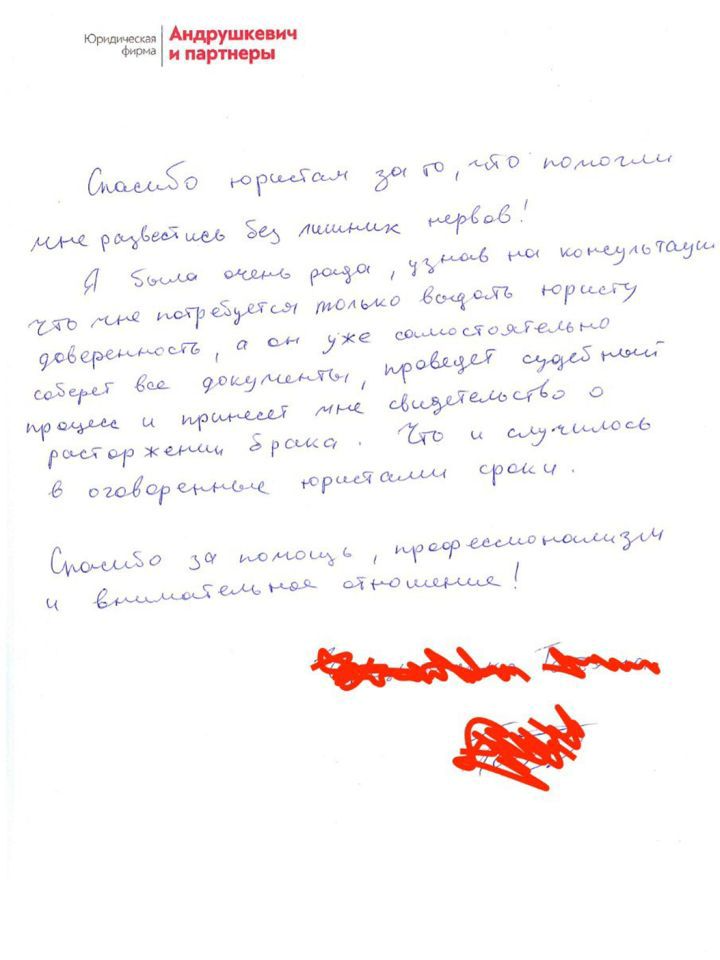 Юридическая фирма
Андрушкевич и партнеры
Спасибо юристам за то, что помогли
мне развестись без лишних нервов!
Я была очень рада, узнав на консультации
что мне потребуется только выдать юристу
доверенность, а он уже самостоятельно
соберет все документы, проведет судебный
процесс и принесет мне свидетельство о
расторжении брака. Что и случилось
в оговоренные юристами сроки.
Спасибо за помощь, профессионализм
и внимательное отношение!